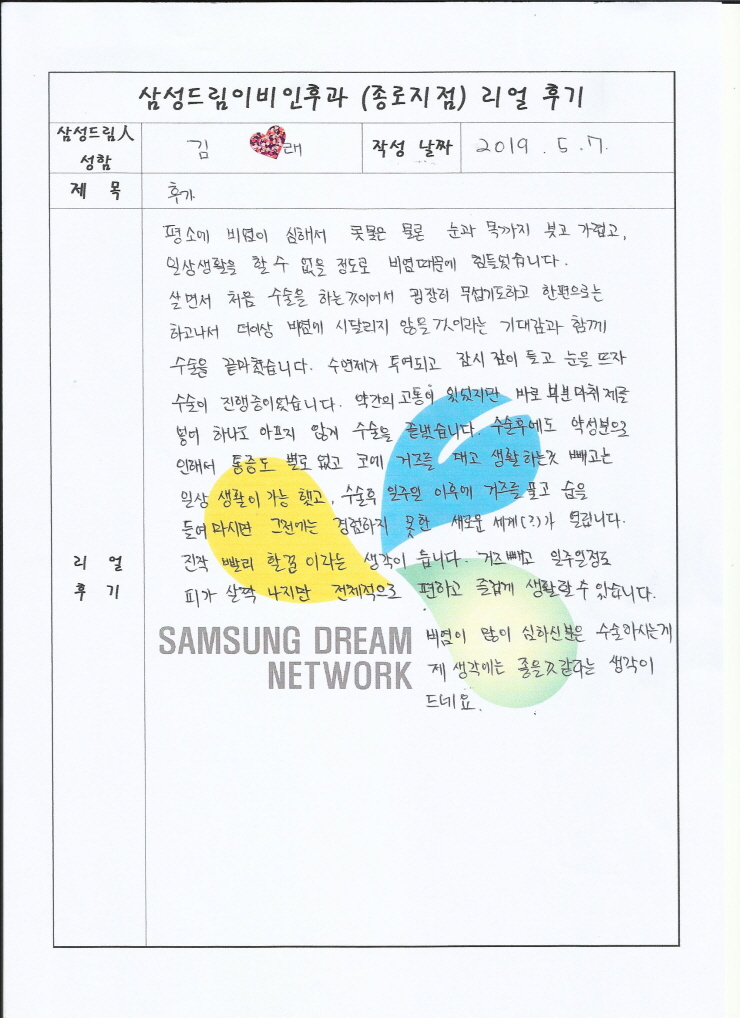 삼성드림이비인후과 (종로지점) 리얼 후기
삼성드림人 성함
김 래
작성 날짜
2019. 5. 7.
제 목
후기
리 얼 후 기
평소에 비염이 심해서 콧물은 물론 눈과 목까지 붓고 가렵고,
일상생활을 할 수 없을 정도로 비염때문에 힘들었습니다.
살면서 처음 수술을 하는것이어서 굉장히 무섭기도하고 한편으로는
하고나서 더이상 비염에 시달리지 않을것이라는 기대감과 함께
수술을 끝마쳤습니다. 수면제가 투여되고 잠시 잠이 들고 눈을 뜨자
수술이 진행중이었습니다. 약간의 고통이 있었지만 바로 부분마취제를
넣어 하나도 아프지 않게 수술을 끝냈습니다. 수술후에도 약성분으로
인해서 통증도 별로 없고 코에 거즈를 대고 생활하는것 빼고는
일상 생활이 가능 했고, 수술후 일주일 이후에 거즈를 풀고 숨을
들여 마시면 그전에는 경험하지 못한 새로운 세계(?)가 열립니다.
진작 빨리 할껄 이라는 생각이 듭니다. 거즈빼고 일주일정도
피가 살짝 나지만 전체적으로 편하고 즐겁게 생활할수 있습니다.
비염이 많이 심하신분은 수술하시는게
제 생각에는 좋을것 같다는 생각이
드네요.
SAMSUNG DREAM
NETWORK